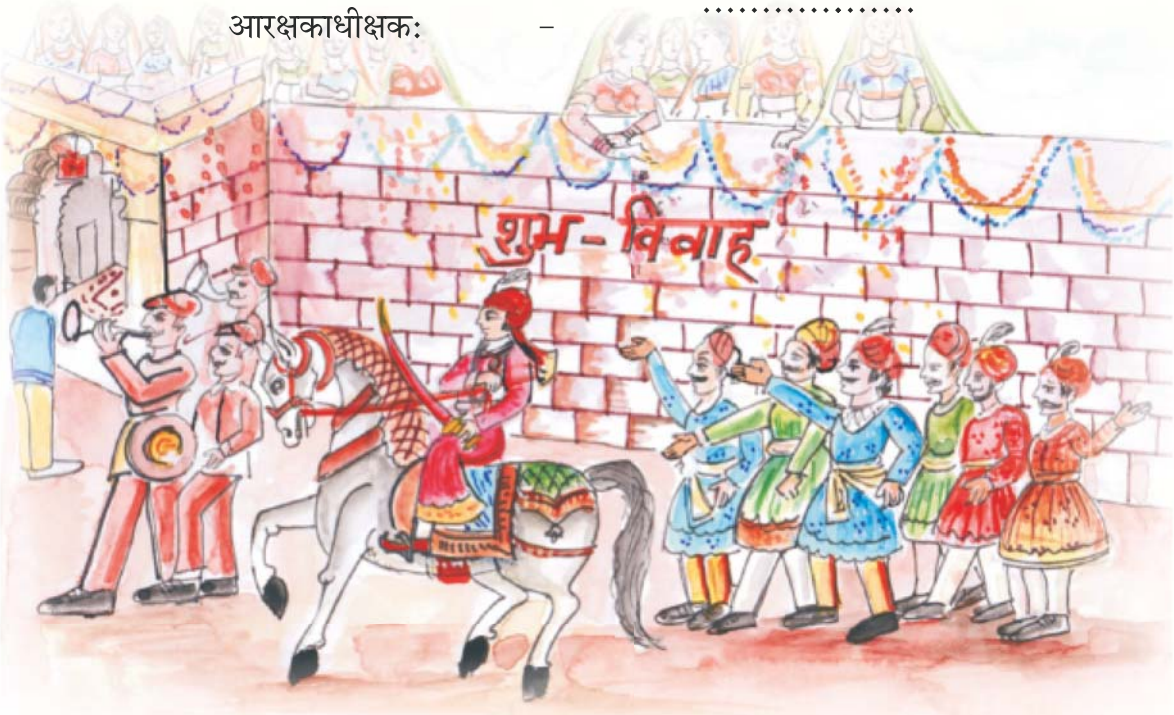 ..................
आरक्षकाधीक्षकः –
शुभ - विवाह